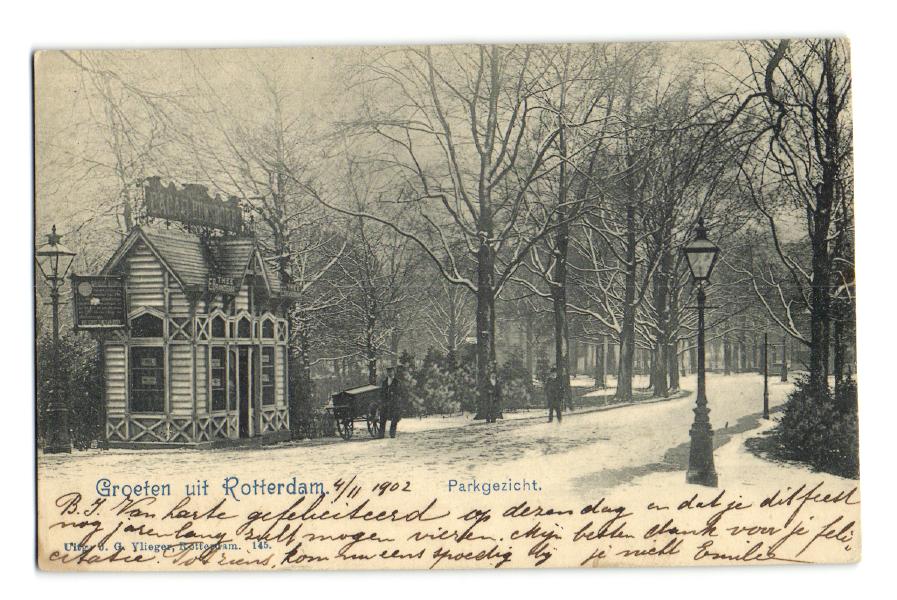 Groeten uit Rotterdam. 4/11 1902
Parkgezicht.
B.J. Van harte gefeliciteerd op dezen dag en dat je dit feest
nog jaren lang zult mogen vieren. Mijn besten dank voor je feli
citatie. Tot ziens, kom nu eens spoedig bij je nicht Emilie
Uitg. J. G. Vlieger, Rotterdam. 145.